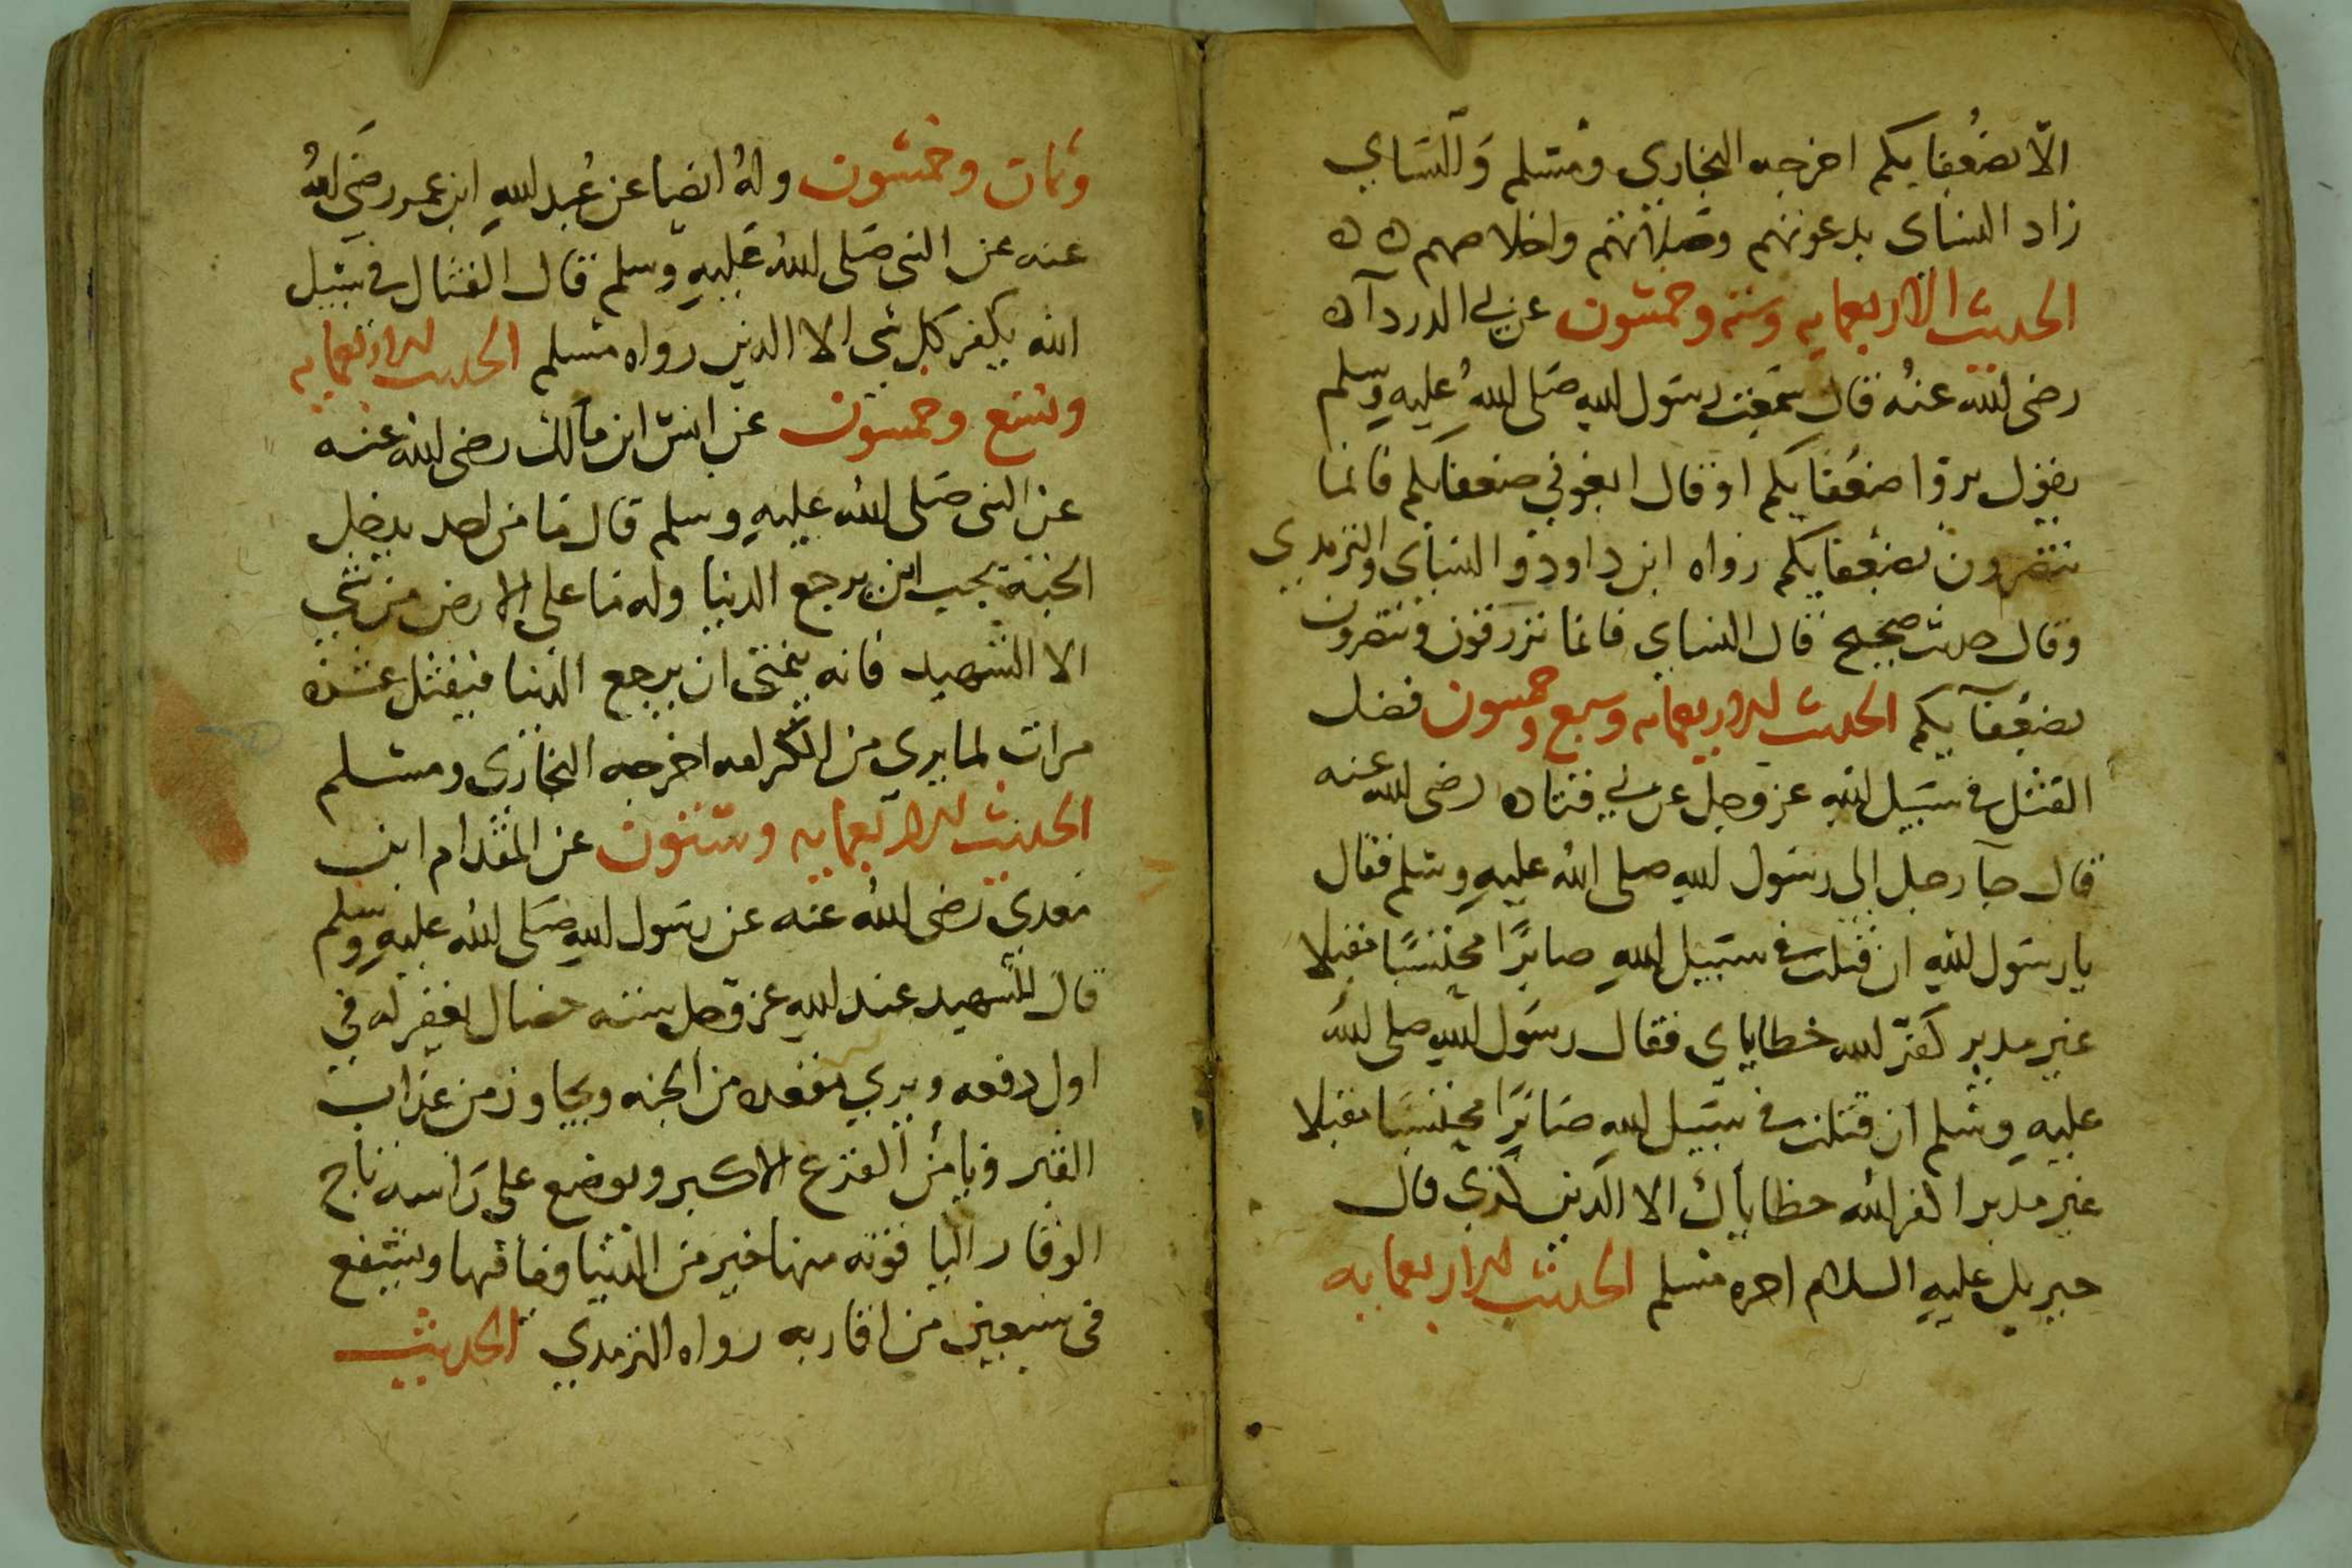 الّا بضُعفايكم اخرجه البخاري ومسلم وَالنساي
زاد النساى بدعوتهم وصلاتهم واخلاصهم ه ه
الحديث الاربعمايه وسته وخمسون عن ابي الدردآء
رضى الله عنُه قال سمعت رسَول الله صَلى اللهُ عليه وسلم
يقول بروا ضعُفايكم او قال ابغوني ضعفايكم فانما
تنتصرون بضعفايكم رواه ابن داود والنساى والترمدي
وقال حديث صحيح قال النساي فانما ترزقون وتنتصرون
بضعُفآيكم الحديث الاربعمايه وسبع وخمسون فضل
القتل في سبَيل الله عز وجل عن ابي قتاده رضى الله عنه
قال جآ رجل الى رسَول الله صلى الله عليه وسَلم فقال
يا رسَول الله ان قتلت في سبَيل اللهِ صابرًا محتسبًا مقبلا
غير مدبر كَفّر الله خطاياي فقال رسَول الله صلى الله
عليه وسَلم ان قتلت في سبَيل الله صَابرًا محتسبَا مقبلا
غير مدبرا كفر الله خطاياك الا الدين كذي قال
جبريل عليه السلام اخره مسلم الحديث الاربعمايه
وثمان وخمسون ولهُ ايضا عن عُبد اللهِ ابن عمر رضَي اللهُ
عنه عن النبى صَلى اللهُ عَليهِ وسلم قال القتال في سبَيل
الله يكفر كل شي الا الدين رواه مسلم الحديث الاربعمايه
وتسع وخمسون عن انسَ ابن مالك رضى الله عنه
عن النبى صَلى الله عليهِ وسلم قال ما من احد يدخل
الجنة يحب ان يرجع الدنيا وله ما على الارض من شي
الا الشهيد فانه يتمنى ان يرجع الدنيا فيقتل عشره
مرات لما يري من الكرامه اخرجه البخاري ومسلم
الحديث الاربعمايه وستون عن المقدام ابن
معدي رضى اللهُ عنه عن رسَول الله صَلى الله عليهِ وسلم
قال للشهيد عند اللهِ عز وجل سته خصال يغفر له في
اول دفعه ويري مقعده من الجنه ويجاوز من عذاب
القبر ويامَن الفزع الاكبر ويوضع على رَاسه تاج
الوقار الياقوته منها خير من الدنيا وما فيها ويشفع
فى سبعين من اقاربه رواه الترمدي الحديث